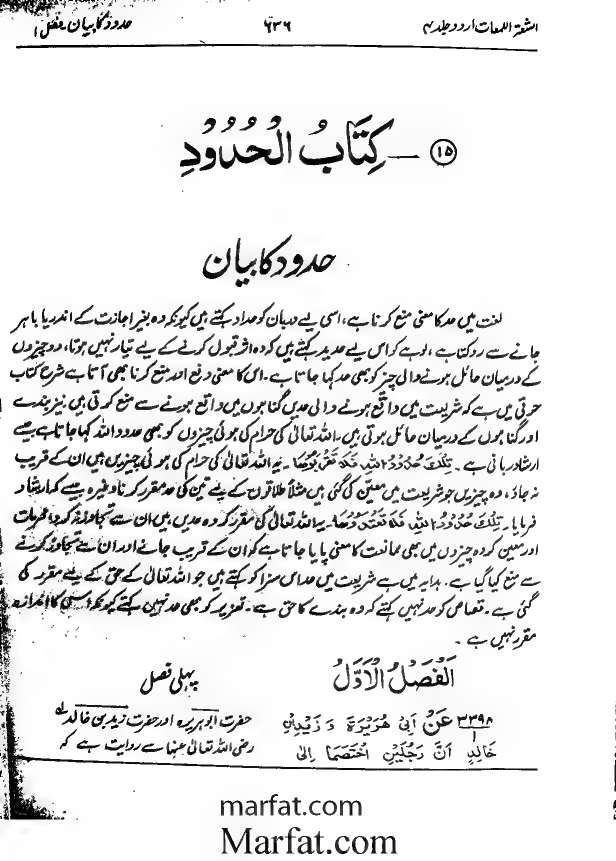 اشعۃ اللمعات اردو جلد ۴ ۶۳۶ حدود کا بیان فصل ۱
۱۵ — کِتَابُ الْحُدُودِ
حدود کا بیان
لغت میں حد کا معنی منع کرنا ہے، اسی لیے دربان کو حداد کہتے ہیں کیونکہ وہ بغیر اجازت کے اندر یا باہر
جانے سے روکتا ہے، لوہے کو اس لیے حدید کہتے ہیں کہ وہ اثر قبول کرنے کے لیے تیار نہیں ہوتا، دو چیزوں
کے درمیان حائل ہونے والی چیز کو بھی حد کہا جاتا ہے۔ اس کا معنی دفع اور منع کرنا بھی آتا ہے شرح کتاب
خرقی میں ہے کہ شریعت میں واقع ہونے والی حدیں گناہوں میں واقع ہونے سے منع کرتی ہیں، نیز بندے
اور گناہوں کے درمیان حائل ہوتی ہیں۔ اللہ تعالیٰ کی حرام کی ہوئی چیزوں کو بھی حدود اللہ کہا جاتا ہے جیسے
ارشاد ربانی ہے۔ تِلْكَ حُدُوْدُ اللهِ فَلَا تَقْرَبُوْهَا۔ یہ اللہ تعالیٰ کی حرام کی ہوئی چیزیں ہیں ان کے قریب
نہ جاؤ، وہ چیزیں جو شریعت میں معین کی گئی ہیں مثلاً طلاقوں کے لیے تین کی حد مقرر کرنا وغیرہ جیسے کہ ارشاد
فرمایا۔ تِلْكَ حُدُوْدُ اللهِ فَلَا تَعْتَدُوْهَا۔ یہ اللہ تعالیٰ کی مقرر کردہ حدیں ہیں ان سے تجاوز نہ کرو، محرمات
اور معین کردہ چیزوں میں بھی ممانعت کا معنی پایا جاتا ہے کہ ان کے قریب جانے اور ان سے تجاوز کرنے
سے منع کیا گیا ہے۔ ہدایہ میں ہے شریعت میں حد اس سزا کو کہتے ہیں جو اللہ تعالیٰ کے حق کے لیے مقرر کی
گئی ہے۔ قصاص کو حد نہیں کہتے کہ وہ بندے کا حق ہے۔ تعزیر کو بھی حد نہیں کہتے کیونکہ اس کا اندازہ
مقرر نہیں ہے۔
اَلْفَصْلُ الْاَوَّلُ
۳۳۹۸ عَنْ اَبِیْ هُرَيْرَةَ وَ زَيْدِ بْنِ
۱
خَالِدٍ اَنَّ رَجُلَيْنِ اخْتَصَمَا اِلٰى
پہلی فصل
حضرت ابوہریرہ اور حضرت زید بن خالد
رضی اللہ تعالیٰ عنہما سے روایت ہے کہ
marfat.com
Marfat.com